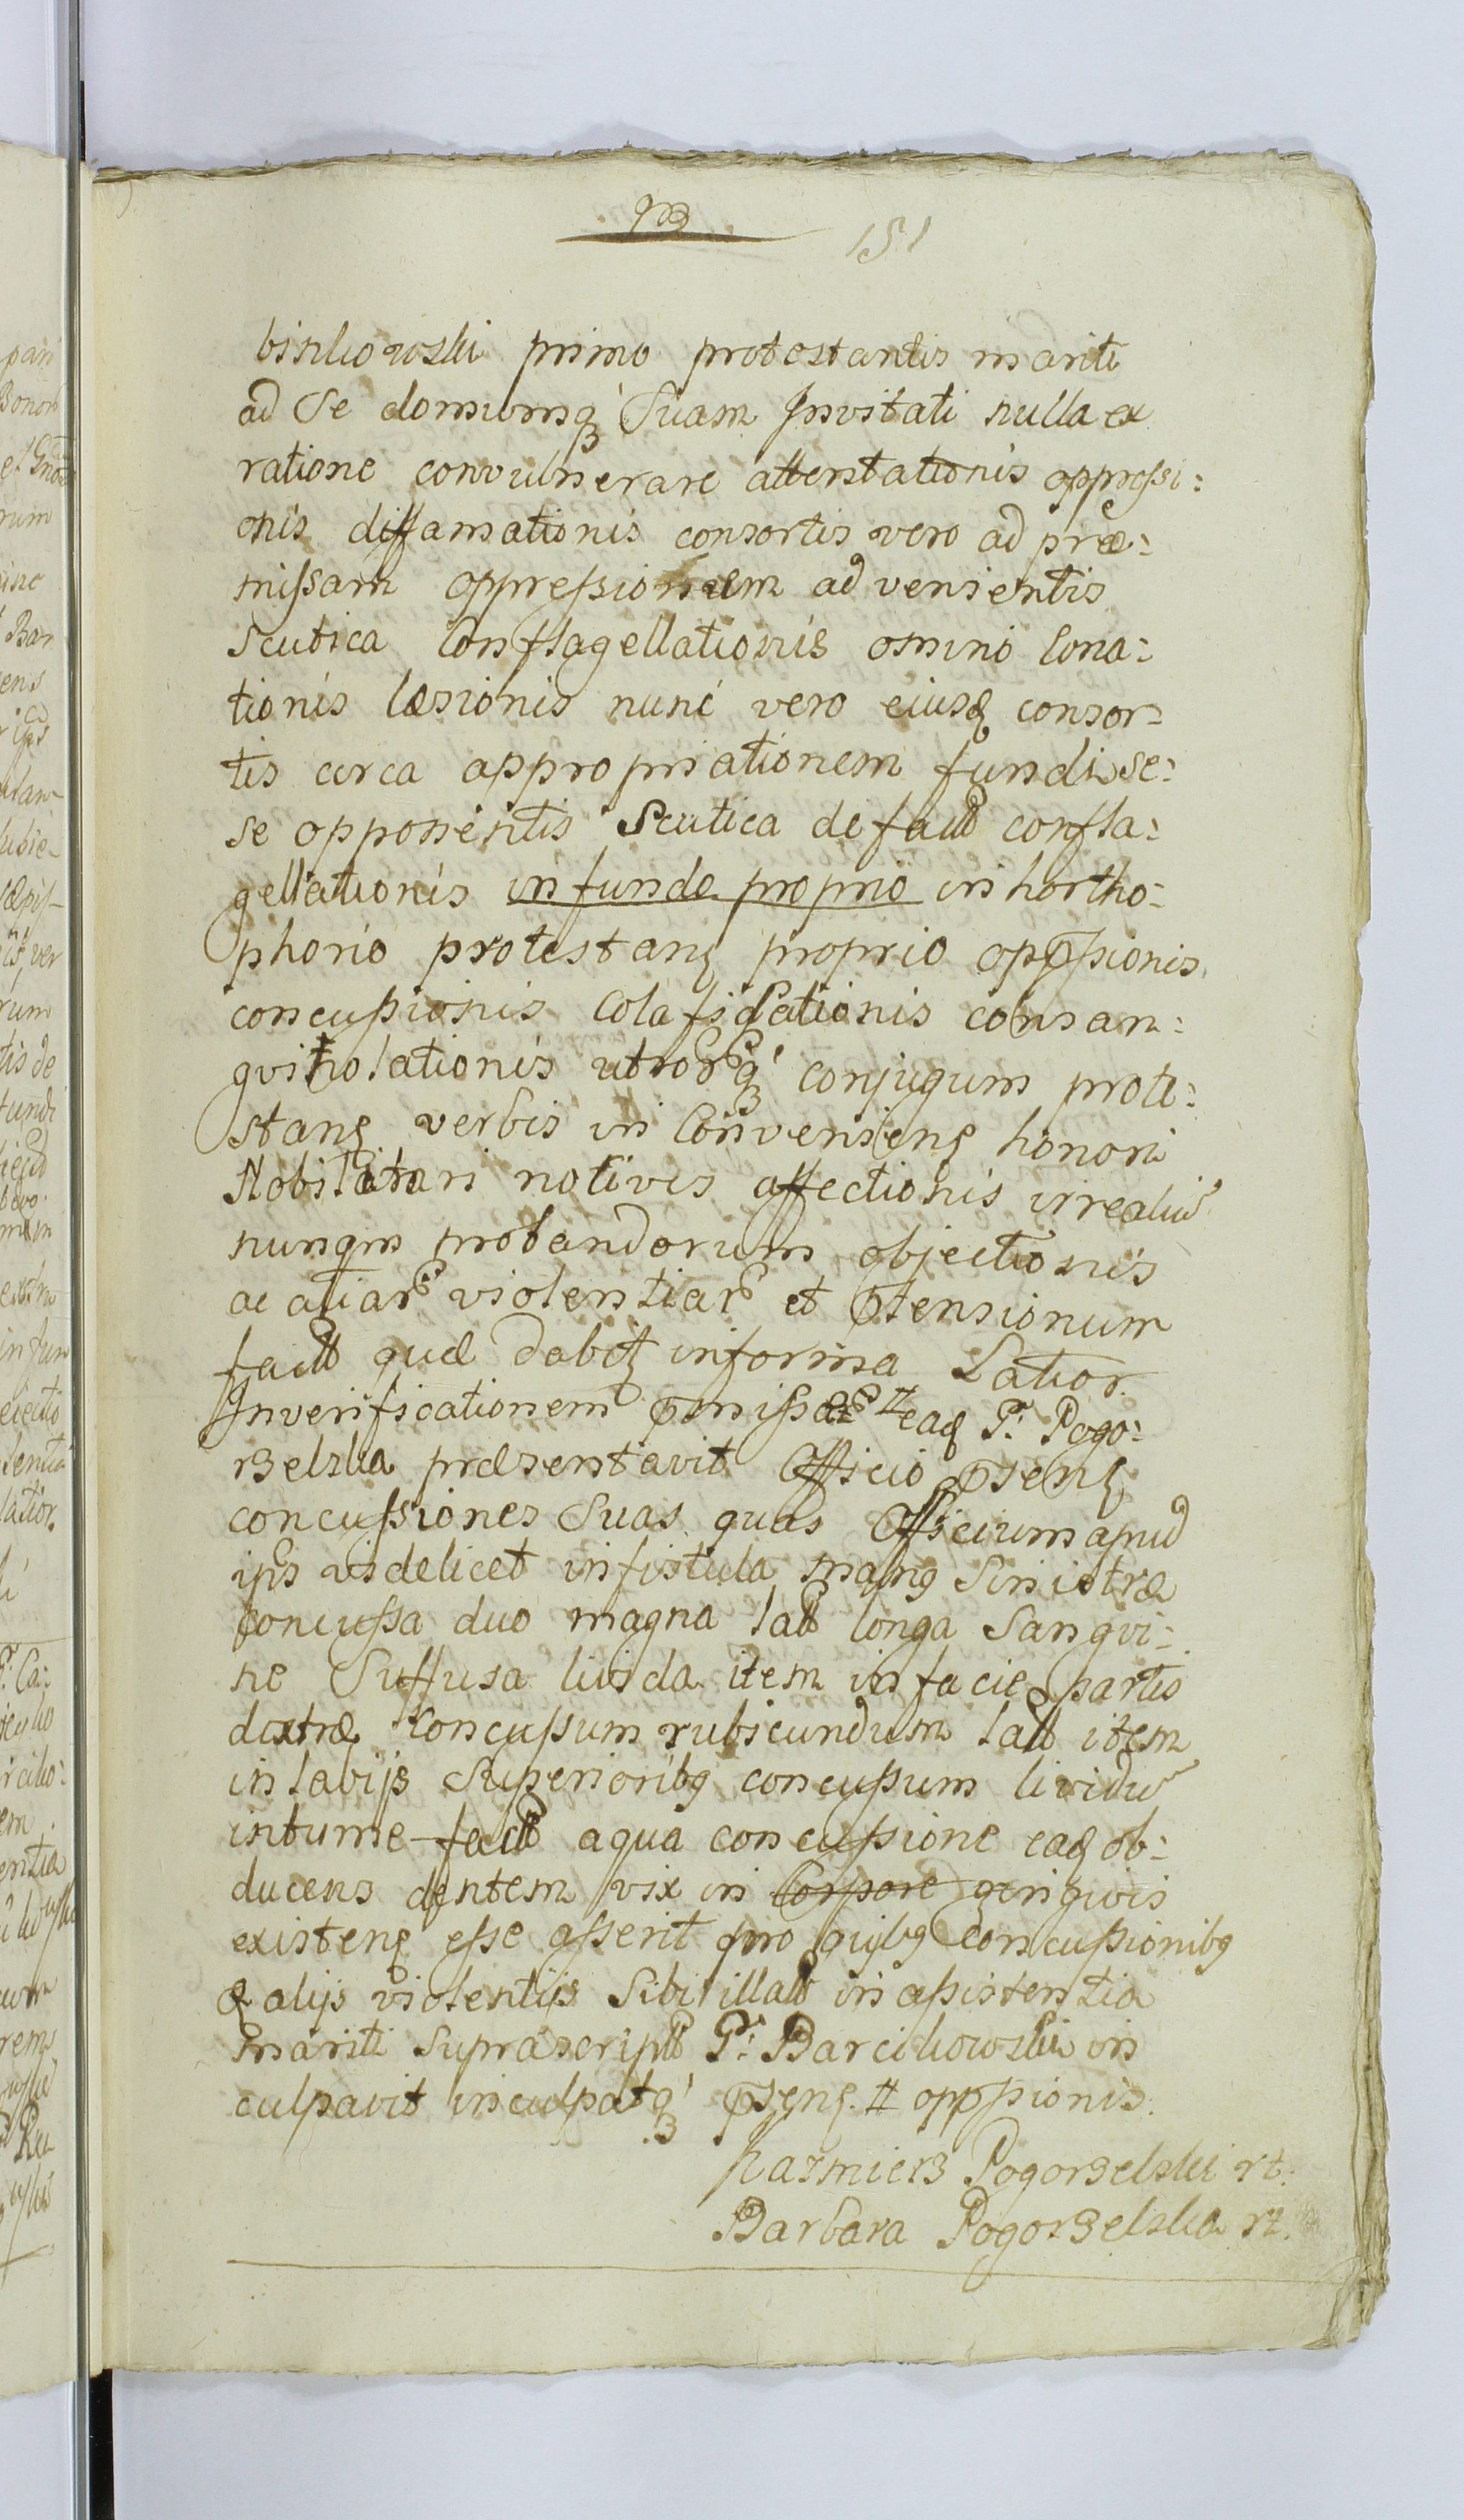 151
bikowski primo protestantis mariti
ad Se domumq́ Suam Invitati nulla ex
ratione convulnerare attentationis oppressi:
onis diffamationis consortis vero ad præ:
missam oppressionem advenientis
Scutica Conflagellationis omnino
tionis læsionis nunc vero eiusd consor-
tis circa appropriationem fundi se:
se opponentis Scutica de facto confla:
gellationis in fundo proprio in hortho:
phorio protestans proprio opp̄sionis
concussionis Colafisationis consan:
gvinolationis utrorq́ conjugum prote:
stans verbis in Conveniens honori
Nobilitari notivis affectionis irrealiū
nunqm probandorum objectionis
ac aliar violentiar et p̄tensionum
facto quæ dabit in forma Latior.
In verificationem p̄missor ead P: Pogo:
rzelska præsentavit Officio p̄sens
concussiones Suas quas Officium apud
ips videlicet in fistula mang Sinistræ
concussa duo magna lata longa Sangvi:
ne Suffusa livida item in facie partis
dextræ concussum rubicundum latt item
in labijs Superioribg concussum lividū
intume-factt a qua concussione ead ob:
ducens dentem vix in Corpore gingivis
existens esse asserit pro quibg concussionibg
& alijs violentijs Sibi illatt in assistentia
mariti suprascriptt P: Barcikowski in
culpavit inculpatq́ p̄sens. # opp̄sionis.
Kazmierz Pogorzelski rt.
Barbara Pogorzelska rt.